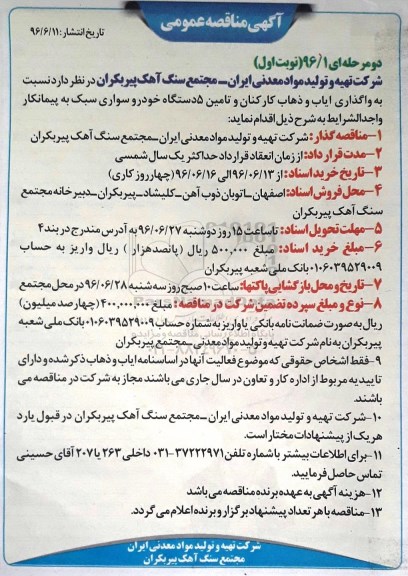 آگهی مناقصه عمومی
تاریخ انتشار: ۹۶/۶/۱۱
دو مرحله ای ۹۶/۱ (نوبت اول)
شرکت تهیه و تولید مواد معدنی ایران ــ مجتمع سنگ آهک پیربکران در نظر دارد نسبت
به واگذاری ایاب و ذهاب کارکنان و تامین ۵ دستگاه خودرو سواری سبک به پیمانکار
واجدالشرایط به شرح ذیل اقدام نماید:
۱ــ مناقصه گذار: شرکت تهیه و تولید مواد معدنی ایران ــ مجتمع سنگ آهک پیربکران
۲ــ مدت قرار داد: از زمان انعقاد قرارداد حداکثر یک سال شمسی
۳ــ تاریخ خرید اسناد: از ۹۶/۰۶/۱۳ الی ۹۶/۰۶/۱۶ (چهار روز کاری)
۴ــ محل فروش اسناد: اصفهان ــ اتوبان ذوب آهن ــ کلیشاد ــ پیربکران ــ دبیرخانه مجتمع
سنگ آهک پیربکران
۵ــ مهلت تحویل اسناد: تا ساعت ۱۵ روز دوشنبه ۹۶/۰۶/۲۷ به آدرس مندرج در بند ۴
۶ــ مبلغ خرید اسناد: مبلغ ۵۰۰,۰۰۰ ریال (پانصد هزار) ریال واریز به حساب
۰۱۰۶۰۳۹۵۲۹۰۰۹ بانک ملی شعبه پیربکران
۷ــ تاریخ و محل بازگشایی پاکتها: ساعت ۱۰ صبح روز سه شنبه ۹۶/۰۶/۲۸ در محل مجتمع
۸ــ نوع و مبلغ سپرده تضمین شرکت در مناقصه: مبلغ ۴۰۰,۰۰۰,۰۰۰ (چهارصد میلیون)
ریال به صورت ضمانت نامه بانکی یا واریز به شماره حساب ۰۱۰۶۰۳۹۵۲۹۰۰۹ بانک ملی شعبه
پیربکران به نام شرکت تهیه و تولید مواد معدنی ــ مجتمع پیربکران
۹ــ فقط اشخاص حقوقی که موضوع فعالیت آنها در اساسنامه ایاب و ذهاب ذکر شده و دارای
تاییدیه مربوط از اداره کار و تعاون در سال جاری می باشند مجاز به شرکت در مناقصه می
باشند.
۱۰ــ شرکت تهیه و تولید مواد معدنی ایران ــ مجتمع سنگ آهک پیربکران در قبول یا رد
هر یک از پیشنهادات مختار است.
۱۱ــ برای اطلاعات بیشتر با شماره تلفن ۳۷۲۲۲۹۷۱-۰۳۱ داخلی ۲۶۳ یا ۲۰۷ آقای حسینی
تماس حاصل فرمایید.
۱۲ــ هزینه آگهی به عهده برنده مناقصه می باشد
۱۳ــ مناقصه با هر تعداد پیشنهاد برگزار و برنده اعلام می گردد.
شرکت تهیه و تولید مواد معدنی ایران
مجتمع سنگ آهک پیربکران